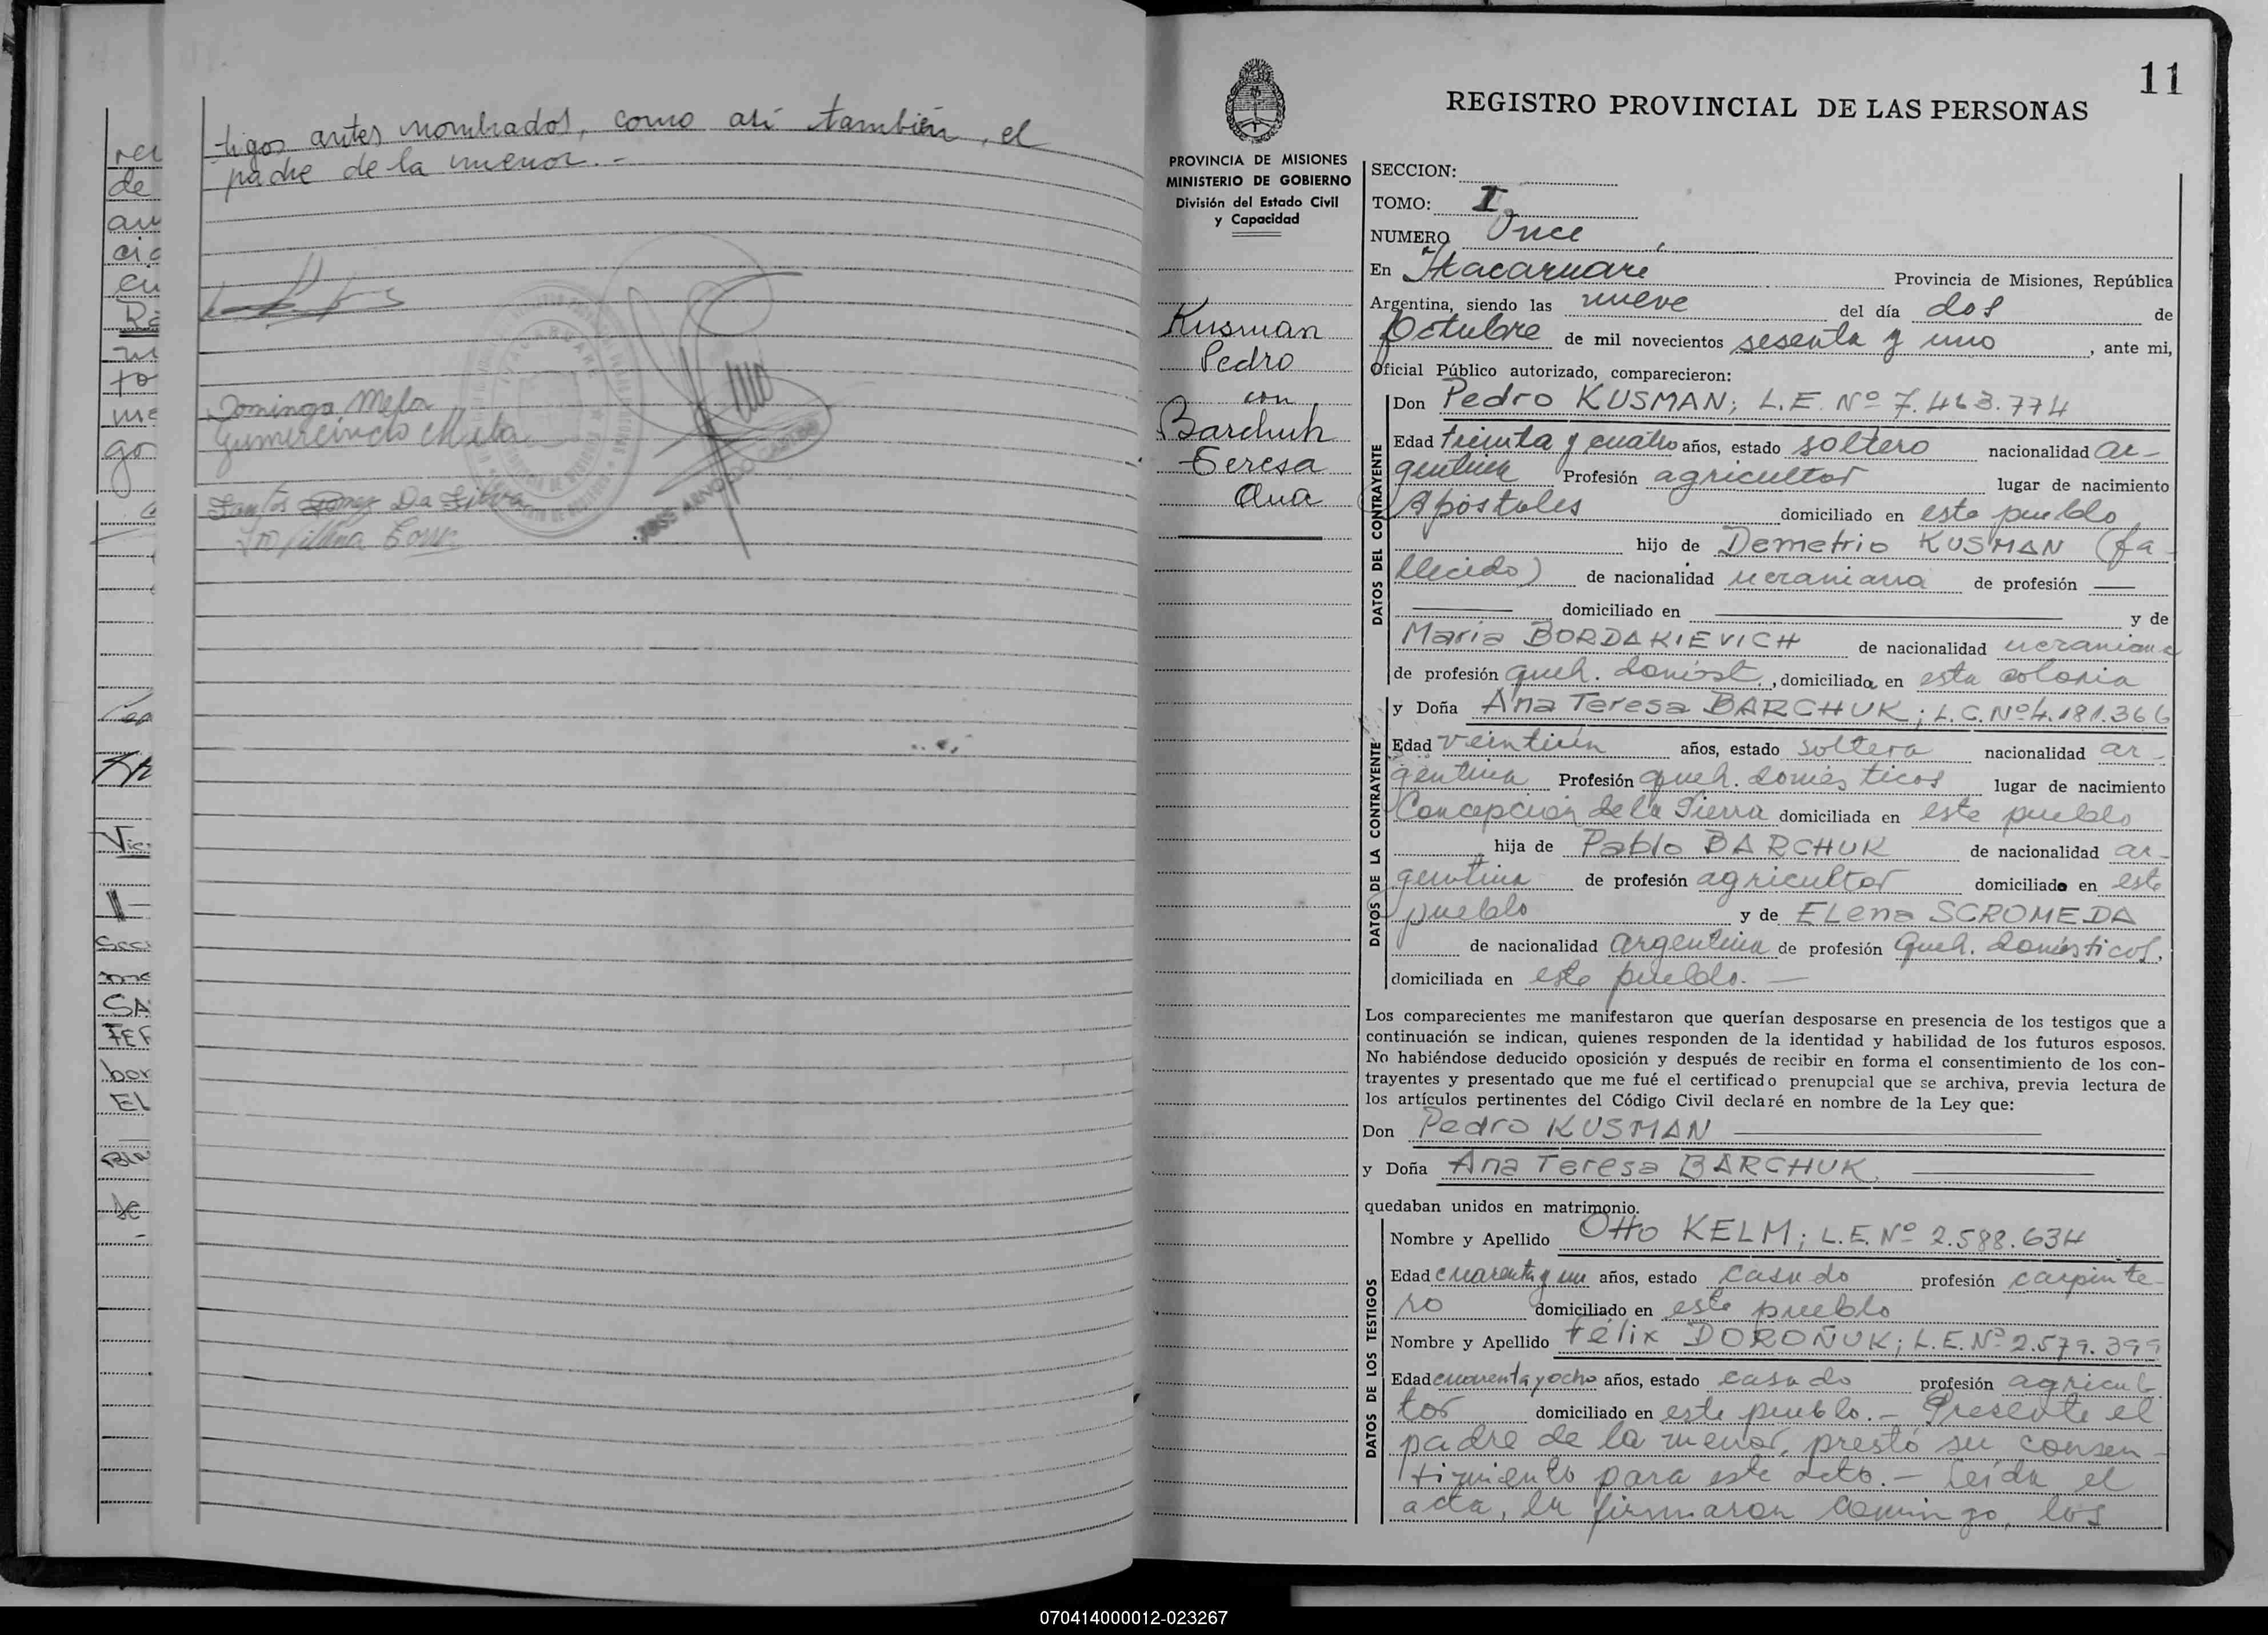 tigos antes nombrados, como así también, el
padre de la menor. -
Domingo Melo
Gumercindo Melo
Santos Da Silva
11
REGISTRO PROVINCIAL DE LAS PERSONAS
PROVINCIA DE MISIONES
MINISTERIO DE GOBIERNO
División del Estado Civil
y Capacidad
Kusman
Pedro
con
Barchuk
Teresa
Ana
SECCION:
TOMO: I
NUMERO Once
En Itacaruare Provincia de Misiones, República
Argentina, siendo las nueve del día dos de
Octubre de mil novecientos sesenta y uno, ante mi,
Oficial Público autorizado, comparecieron:
DATOS DEL CONTRAYENTE
Don Pedro KUSMAN; L.E. Nº 7.463.774
Edad treinta y cuatro años, estado soltero nacionalidad ar-
gentina Profesión agricultor lugar de nacimiento
Apóstoles domiciliado en este pueblo
hijo de Demetrio KUSMAN (fa-
llecido) de nacionalidad ucraniana de profesión —
— domiciliado en — y de
Maria BORDAKIEVICH de nacionalidad ucraniana
de profesión queh. domést., domiciliada en esta colonia
DATOS DE LA CONTRAYENTE
y Doña Ana Teresa BARCHUK; L.C. Nº 4.181.366
Edad veintiún años, estado soltera nacionalidad ar-
gentina Profesión queh. domésticos lugar de nacimiento
Concepción de la Sierra domiciliada en este pueblo
hija de Pablo BARCHUK de nacionalidad ar-
gentina de profesión agricultor domiciliado en este
pueblo y de Elena SCROMEDA
de nacionalidad argentina de profesión queh. domésticos,
domiciliada en este pueblo. —
Los comparecientes me manifestaron que querían desposarse en presencia de los testigos que a
continuación se indican, quienes responden de la identidad y habilidad de los futuros esposos.
No habiéndose deducido oposición y después de recibir en forma el consentimiento de los con-
trayentes y presentado que me fué el certificado prenupcial que se archiva, previa lectura de
los artículos pertinentes del Código Civil declaré en nombre de la Ley que:
Don Pedro KUSMAN —
y Doña Ana Teresa BARCHUK —
quedaban unidos en matrimonio.
DATOS DE LOS TESTIGOS
Nombre y Apellido Otto KELM; L.E. Nº 2.588.634
Edad cuarenta y un años, estado casado profesión carpinte-
ro domiciliado en este pueblo
Nombre y Apellido Félix DOROÑUK; L.E. Nº 2.579.399
Edad cuarenta y ocho años, estado casado profesión agricul-
tor domiciliado en este pueblo. - Presente el
padre de la menor, prestó su consen-
timiento para este acto. - Leída el
acta, la firmaron conmigo, los
070414000012-023267